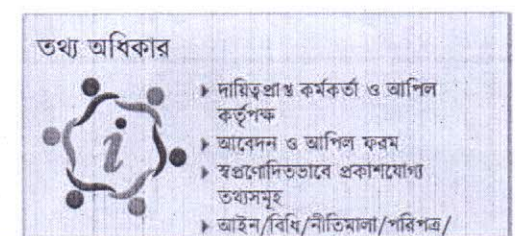 তথ্য অধিকার
দায়িত্বপ্রাপ্ত কর্মকর্তা ও আপিল
কর্তৃপক্ষ
আবেদন ও আপিল ফরম
স্বপ্রণোদিতভাবে প্রকাশযোগ্য
তথ্যসমূহ
আইন/বিধি/নীতিমালা/পরিপত্র/